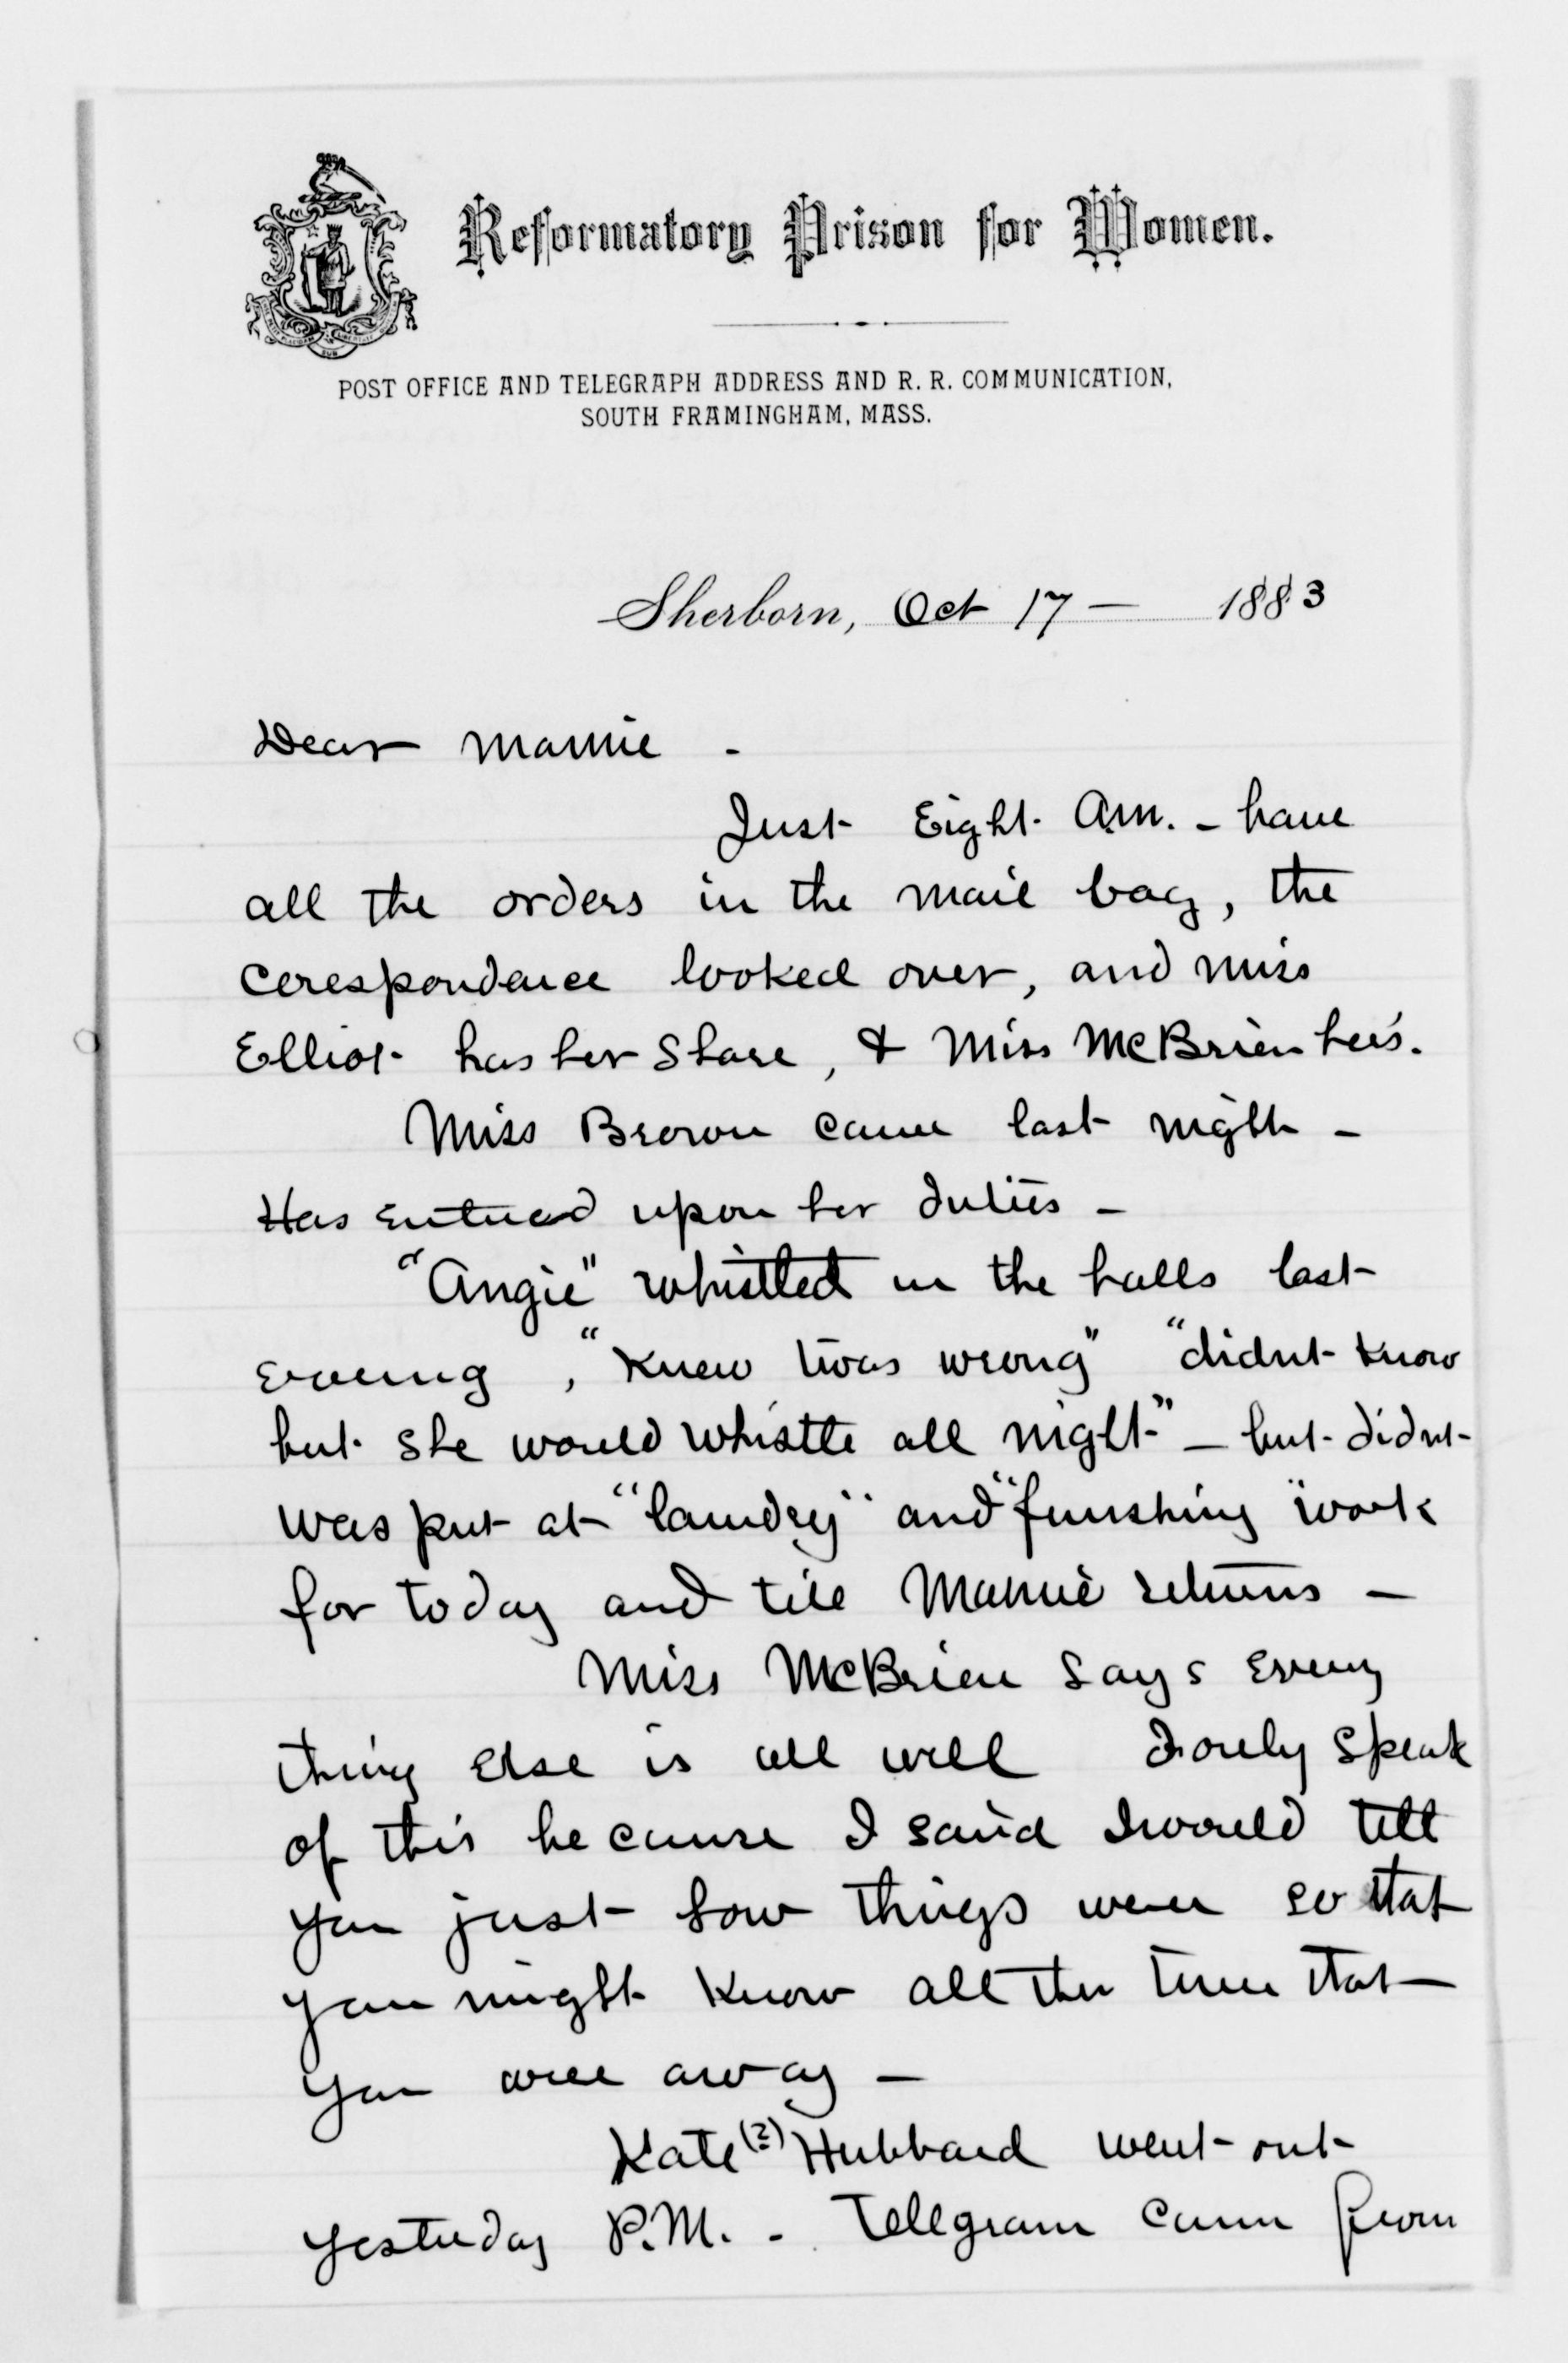 Reformatory Prison for Women.
POST OFFICE AND TELEGRAPH ADDRESS AND R. R. COMMUNICATION,
SOUTH FRAMINGHAM, MASS.
Sherborn, Oct 17 — 1883
Dear Mamie -
Just Eight A.M. - have
all the orders in the mail bag, the
cerespondence looked over, and Miss
Elliot has her share, & Miss McBrien hers.
Miss Brown came last night -
Has entered upon her duties -
"Angie" whistled in the halls last
evening, "knew twas wrong" "didnt know
but she would whistle all night" - but didnt
was put at "laundry" and "finishing" work
for today and till Mamie returns -
Miss McBrien says every
thing else is all well I only speak
of this because I said I would tell
you just how things were so that
you might know all the time that
you were away -
Kate (?) Hubbard went out
yesterday P.M. - Telegram came from